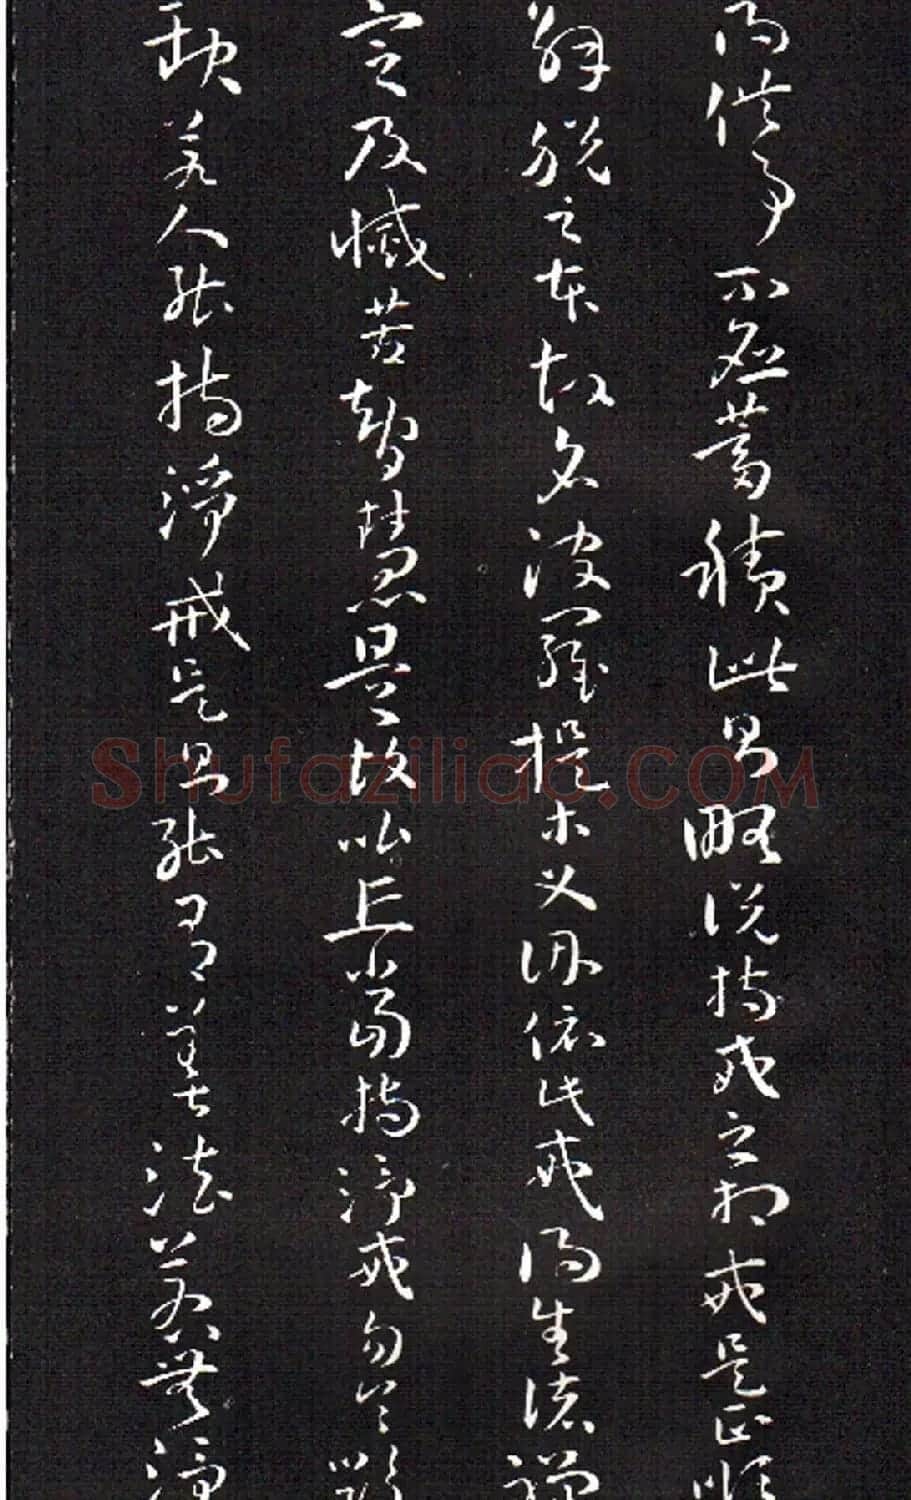 得供事不應蓄積此則略說持戒之相戒是正順
解脫之本故名波羅提木叉因依此戒得生諸禪
定及滅苦智慧是故比丘當持淨戒勿令毀
缺若人能持淨戒是則能有善法若無淨
Shufaziliao.COM